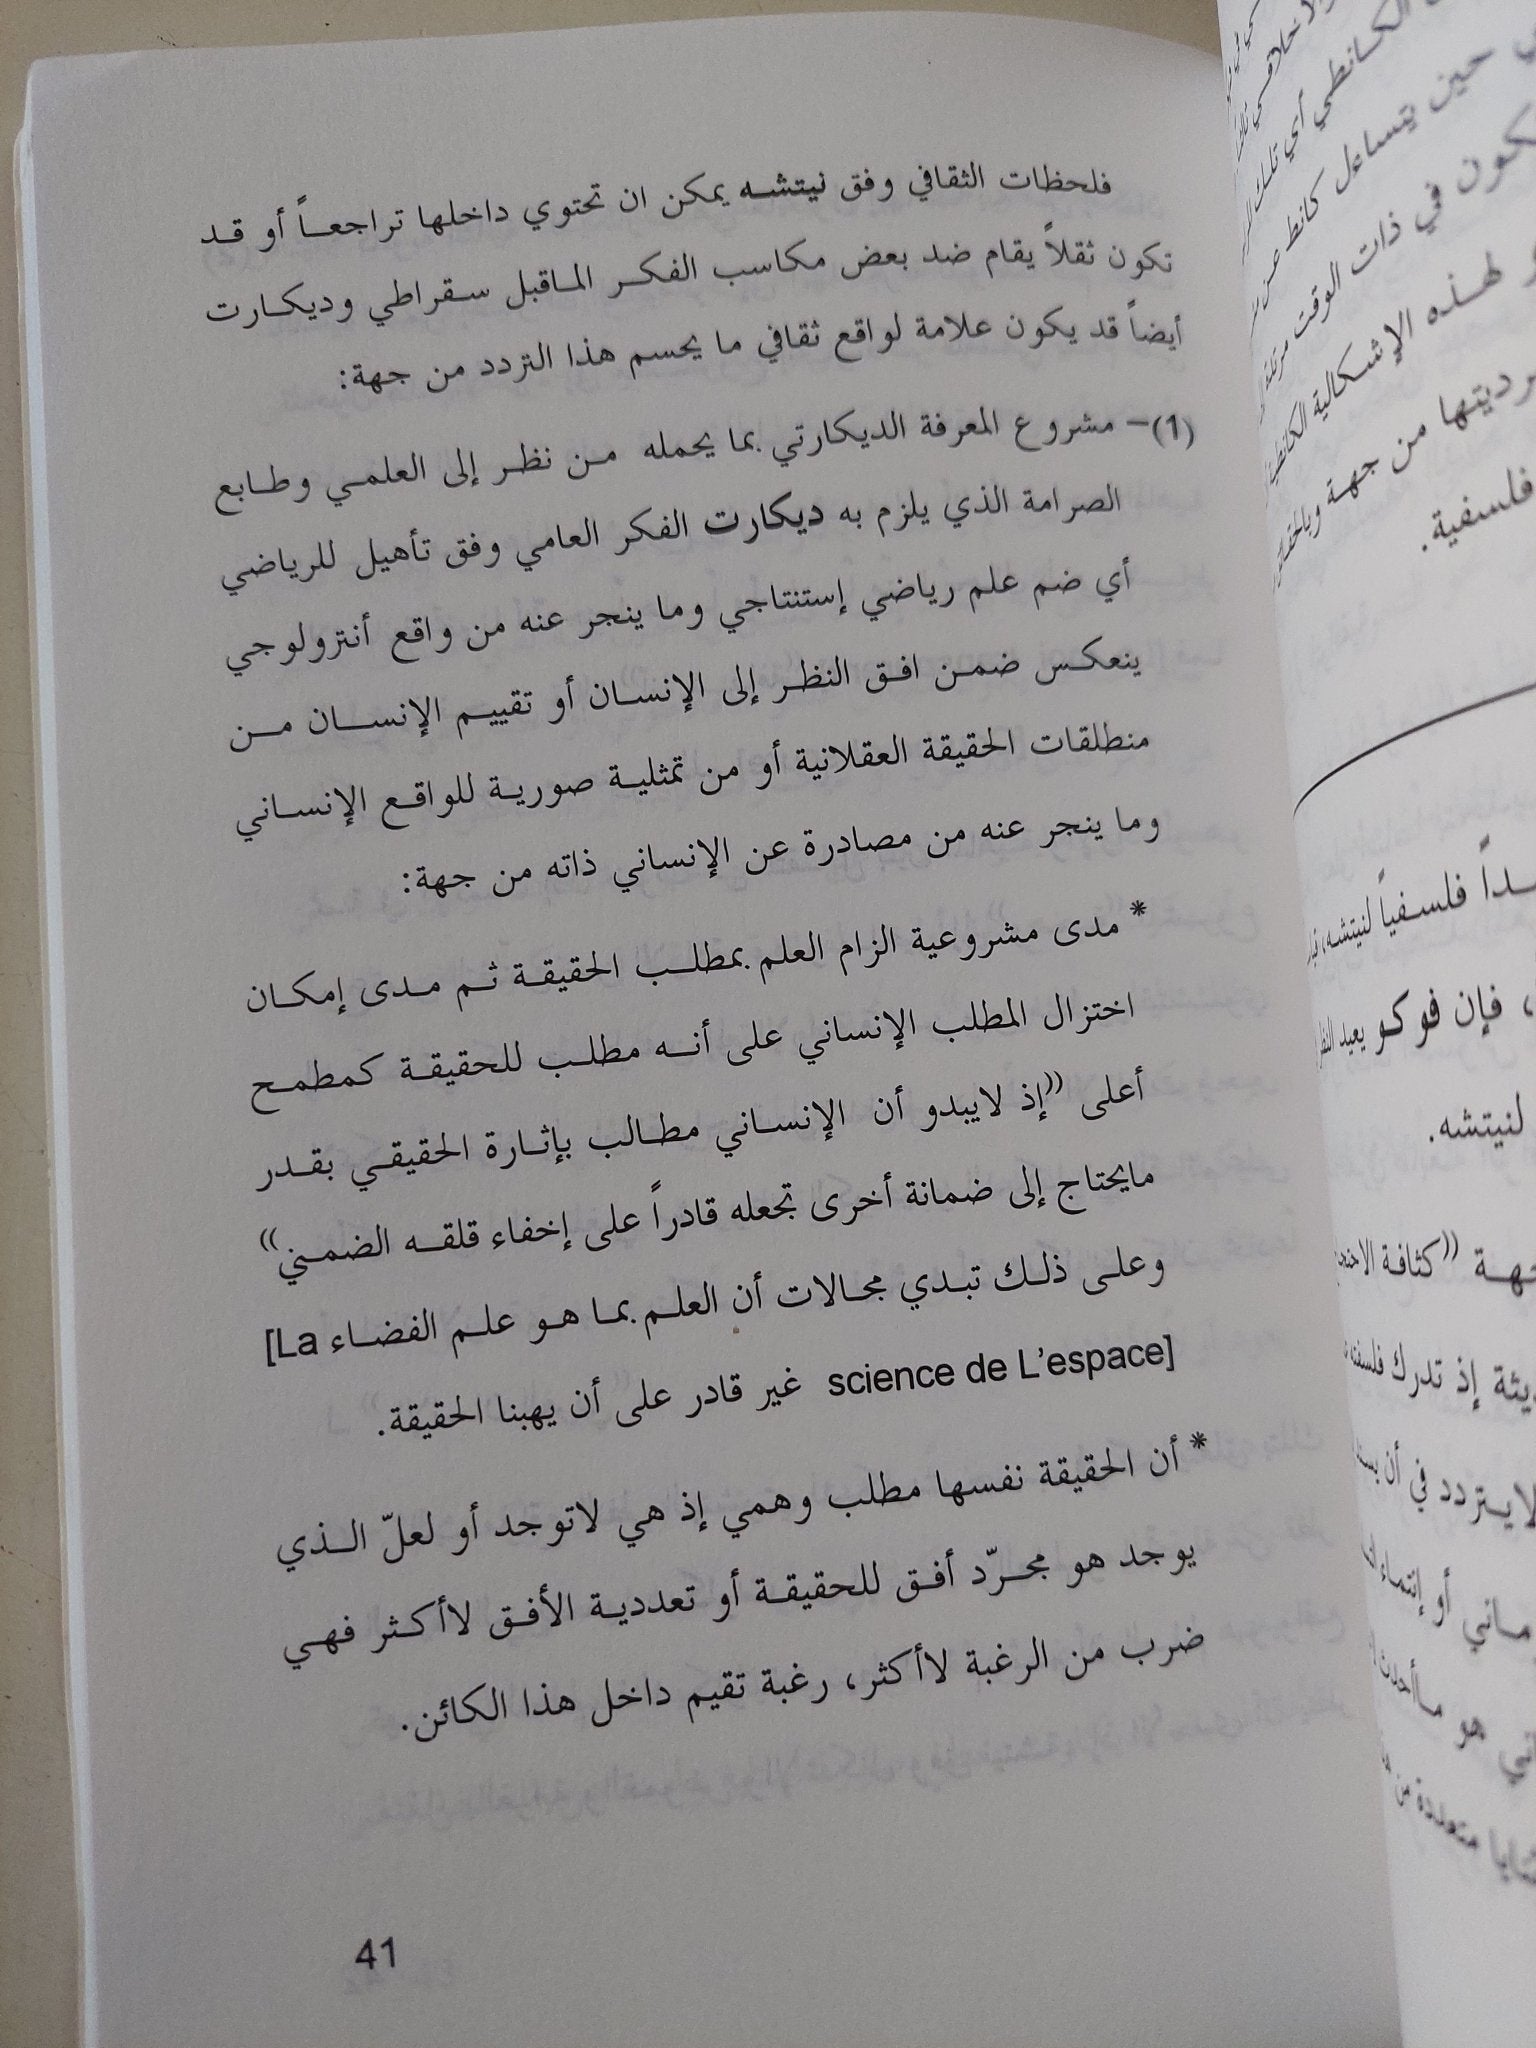 فلحظات الثقافي وفق نيتشه يمكن ان تحتوي داخلها تراجعاً أو قد
تكون ثقلاً يقام ضد بعض مكاسب الفكر الماقبل سقراطي وديكارت
أيضاً قد يكون علامة لواقع ثقافي ما يحسم هذا التردد من جهة:
(1)– مشروع المعرفة الديكارتي بما يحمله من نظر إلى العلمي وطابع
الصرامة الذي يلزم به ديكارت الفكر العامي وفق تأهيل للرياضي
أي ضم علم رياضي إستنتاجي وما ينجر عنه من واقع أنترولوجي
ينعكس ضمن افق النظر إلى الإنسان أو تقييم الإنسان من
منطلقات الحقيقة العقلانية أو من تمثلية صورية للواقع الإنساني
وما ينجر عنه من مصادرة عن الإنساني ذاته من جهة:
* مدى مشروعية الزام العلم بمطلب الحقيقة ثم مدى إمكان
اختزال المطلب الإنساني على أنه مطلب للحقيقة كمطمح
أعلى ((إذ لايبدو أن الإنساني مطالب بإثارة الحقيقي بقدر
مايحتاج إلى ضمانة أخرى تجعله قادراً على إخفاء قلقه الضمني))
وعلى ذلك تبدي مجالات أن العلم بما هو علم الفضاء [La
science de L’espace] غير قادر على أن يهبنا الحقيقة.
* أن الحقيقة نفسها مطلب وهمي إذ هي لاتوجد أو لعلّ الذي
يوجد هو مجرّد أفق للحقيقة أو تعددية الأفق لاأكثر فهي
ضرب من الرغبة لاأكثر، رغبة تقيم داخل هذا الكائن.
41
حين يتساءل كانط عن
في ذات الوقت
لهذه الإشكالية
من جهة
فلسفية.
فلسفياً لنيتشه،
، فإن فوكو يعيد النظر
لنيتشه.
((كثافة
إذ تدرك
لايتردد في أن
أو إنتماء
هو